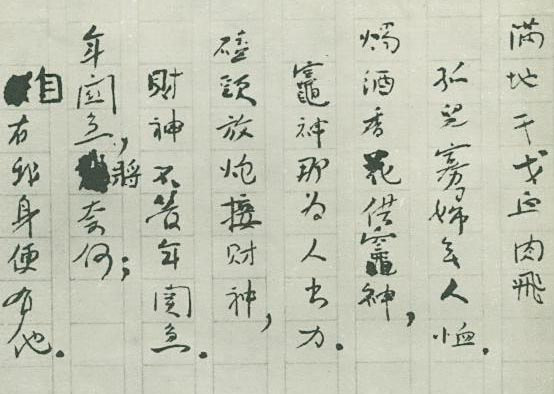 满地干戈血肉飛
孤兒寡婦無人恤。
燭酒香花供竈神，
竈神那為人出力。
磕頭放炮接財神，
財神不管年關急。
年關急，將奈何；
自有我身便有他。